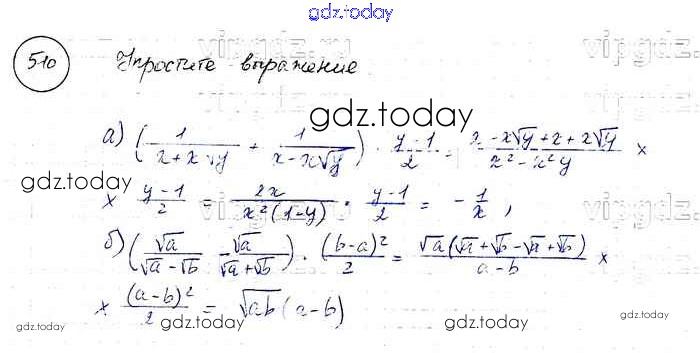 gdz.today
510 Упростите выражение
vipgdz.
gdz.today
а) (1/(x+x√y) + 1/(x-x√y)) · (y-1)/2 = (x-x√y+x+x√y)/(x²-x²y) ×
gdz.today
× (y-1)/2 = 2x/(x²(1-y)) · (y-1)/2 = -1/x,
б) (√a/(√a-√b) - √a/(√a+√b)) · (b-a)²/2 = √a(√a+√b-√a+√b)/(a-b) ×
gdz.today
× (a-b)²/2 = √ab(a-b)
gdz.today
gdz.today
gdz.today